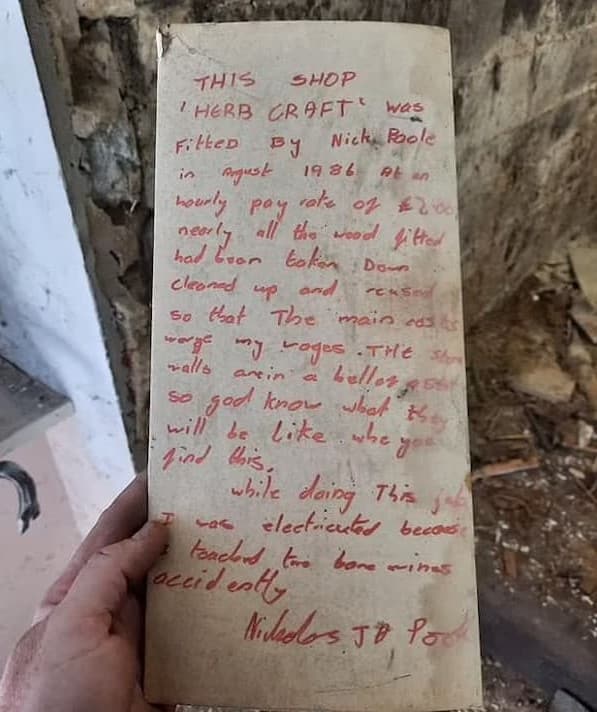 THIS SHOP
'HERB CRAFT' was
Fitted By Nick Poole
in August 1986 At an
hourly pay rate of £2.00
nearly all the wood fitted
had been taken Down
cleaned up and reused
so that The main costs
my wages. THE stone
walls are in a
so god know what they
will be like whe you
find this.
while doing This job
I was electricuted because
I touched two bare wires
accidently
Nicholas J Poole